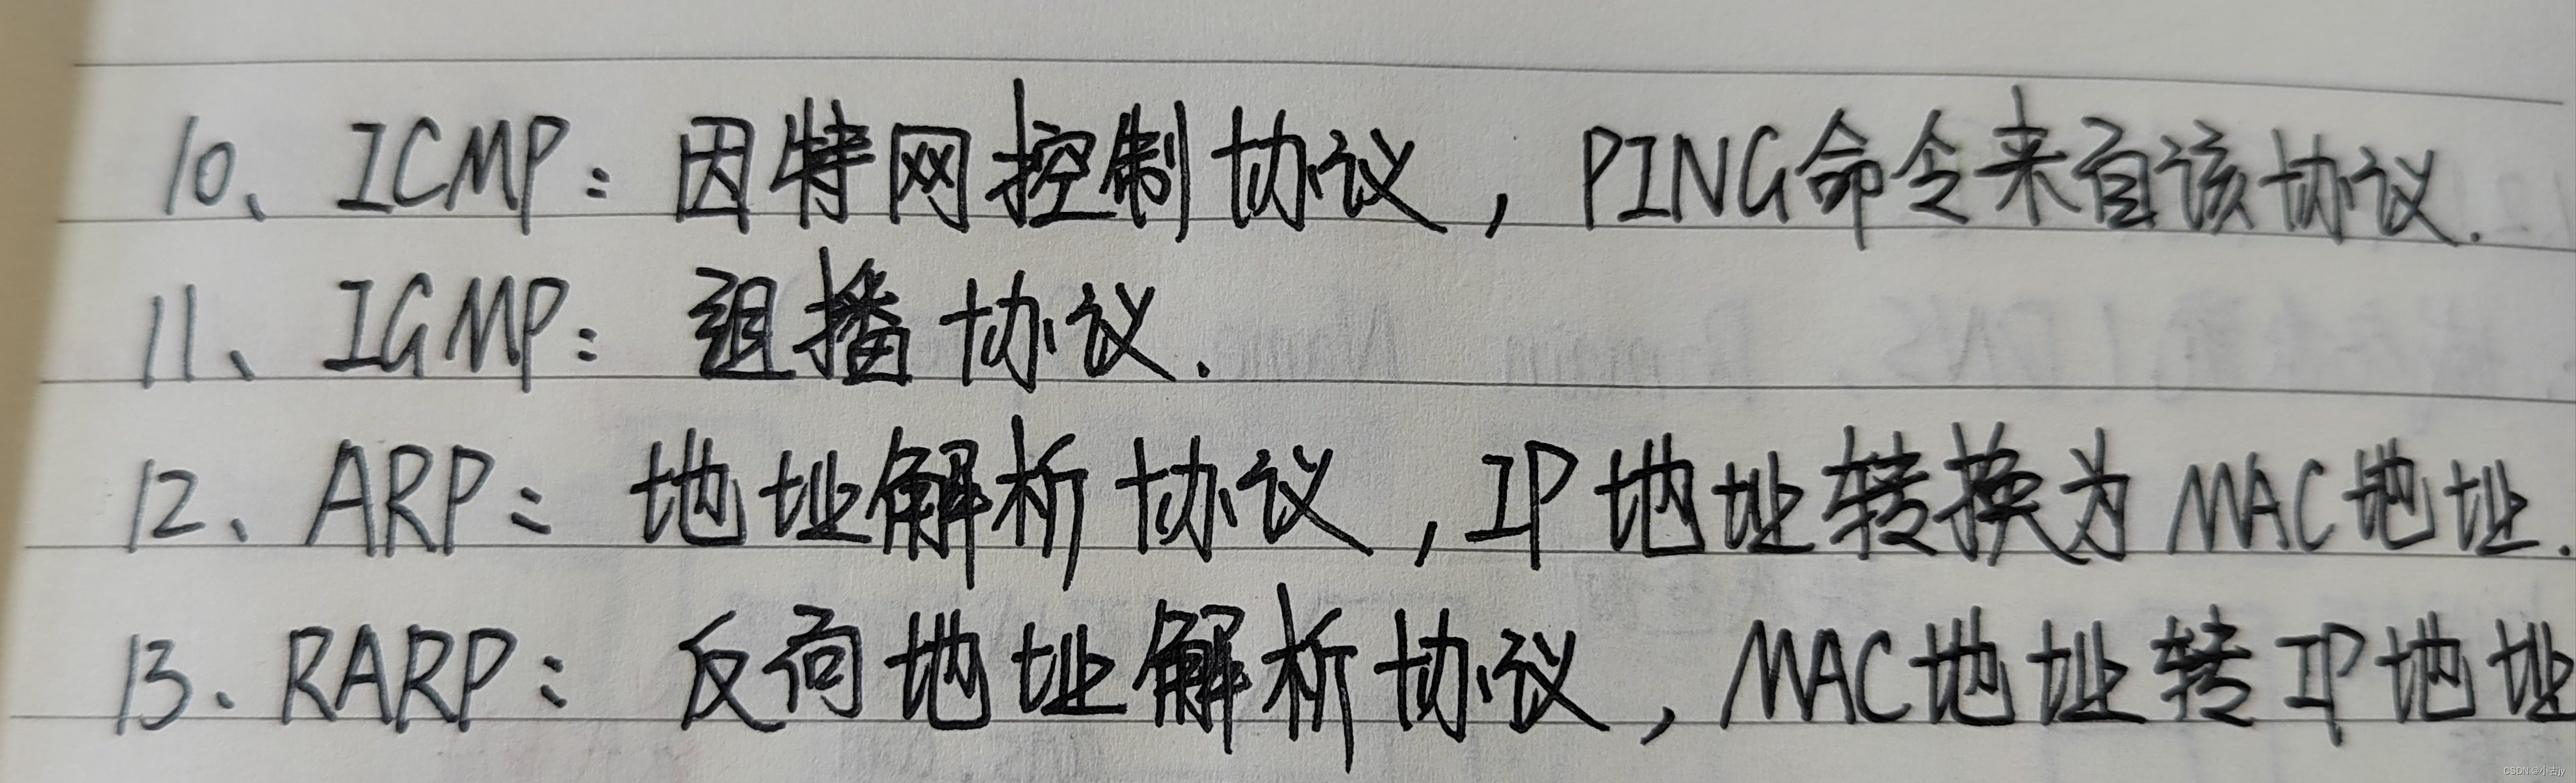 10、ICMP：因特网控制协议，PING命令来自该协议.
11、IGMP：组播协议.
12、ARP：地址解析协议，IP地址转换为MAC地址.
13、RARP：反向地址解析协议，MAC地址转IP地址